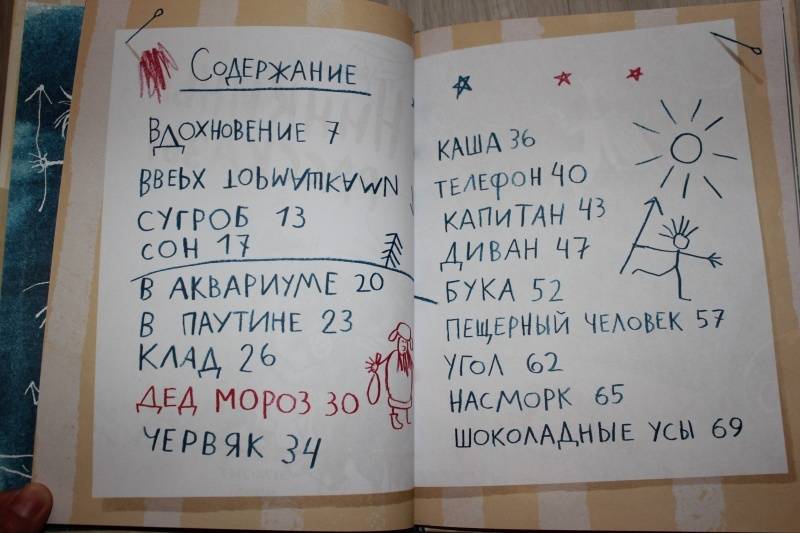 СОДЕРЖАНИЕ
ВДОХНОВЕНИЕ 7
ВВЕРХ ТОРМАШКАМИ
СУГРОБ 13
СОН 17
В АКВАРИУМЕ 20
В ПАУТИНЕ 23
КЛАД 26
ДЕД МОРОЗ 30
ЧЕРВЯК 34
КАША 36
ТЕЛЕФОН 40
КАПИТАН 43
ДИВАН 47
БУКА 52
ПЕЩЕРНЫЙ ЧЕЛОВЕК 57
УГОЛ 62
НАСМОРК 65
ШОКОЛАДНЫЕ УСЫ 69